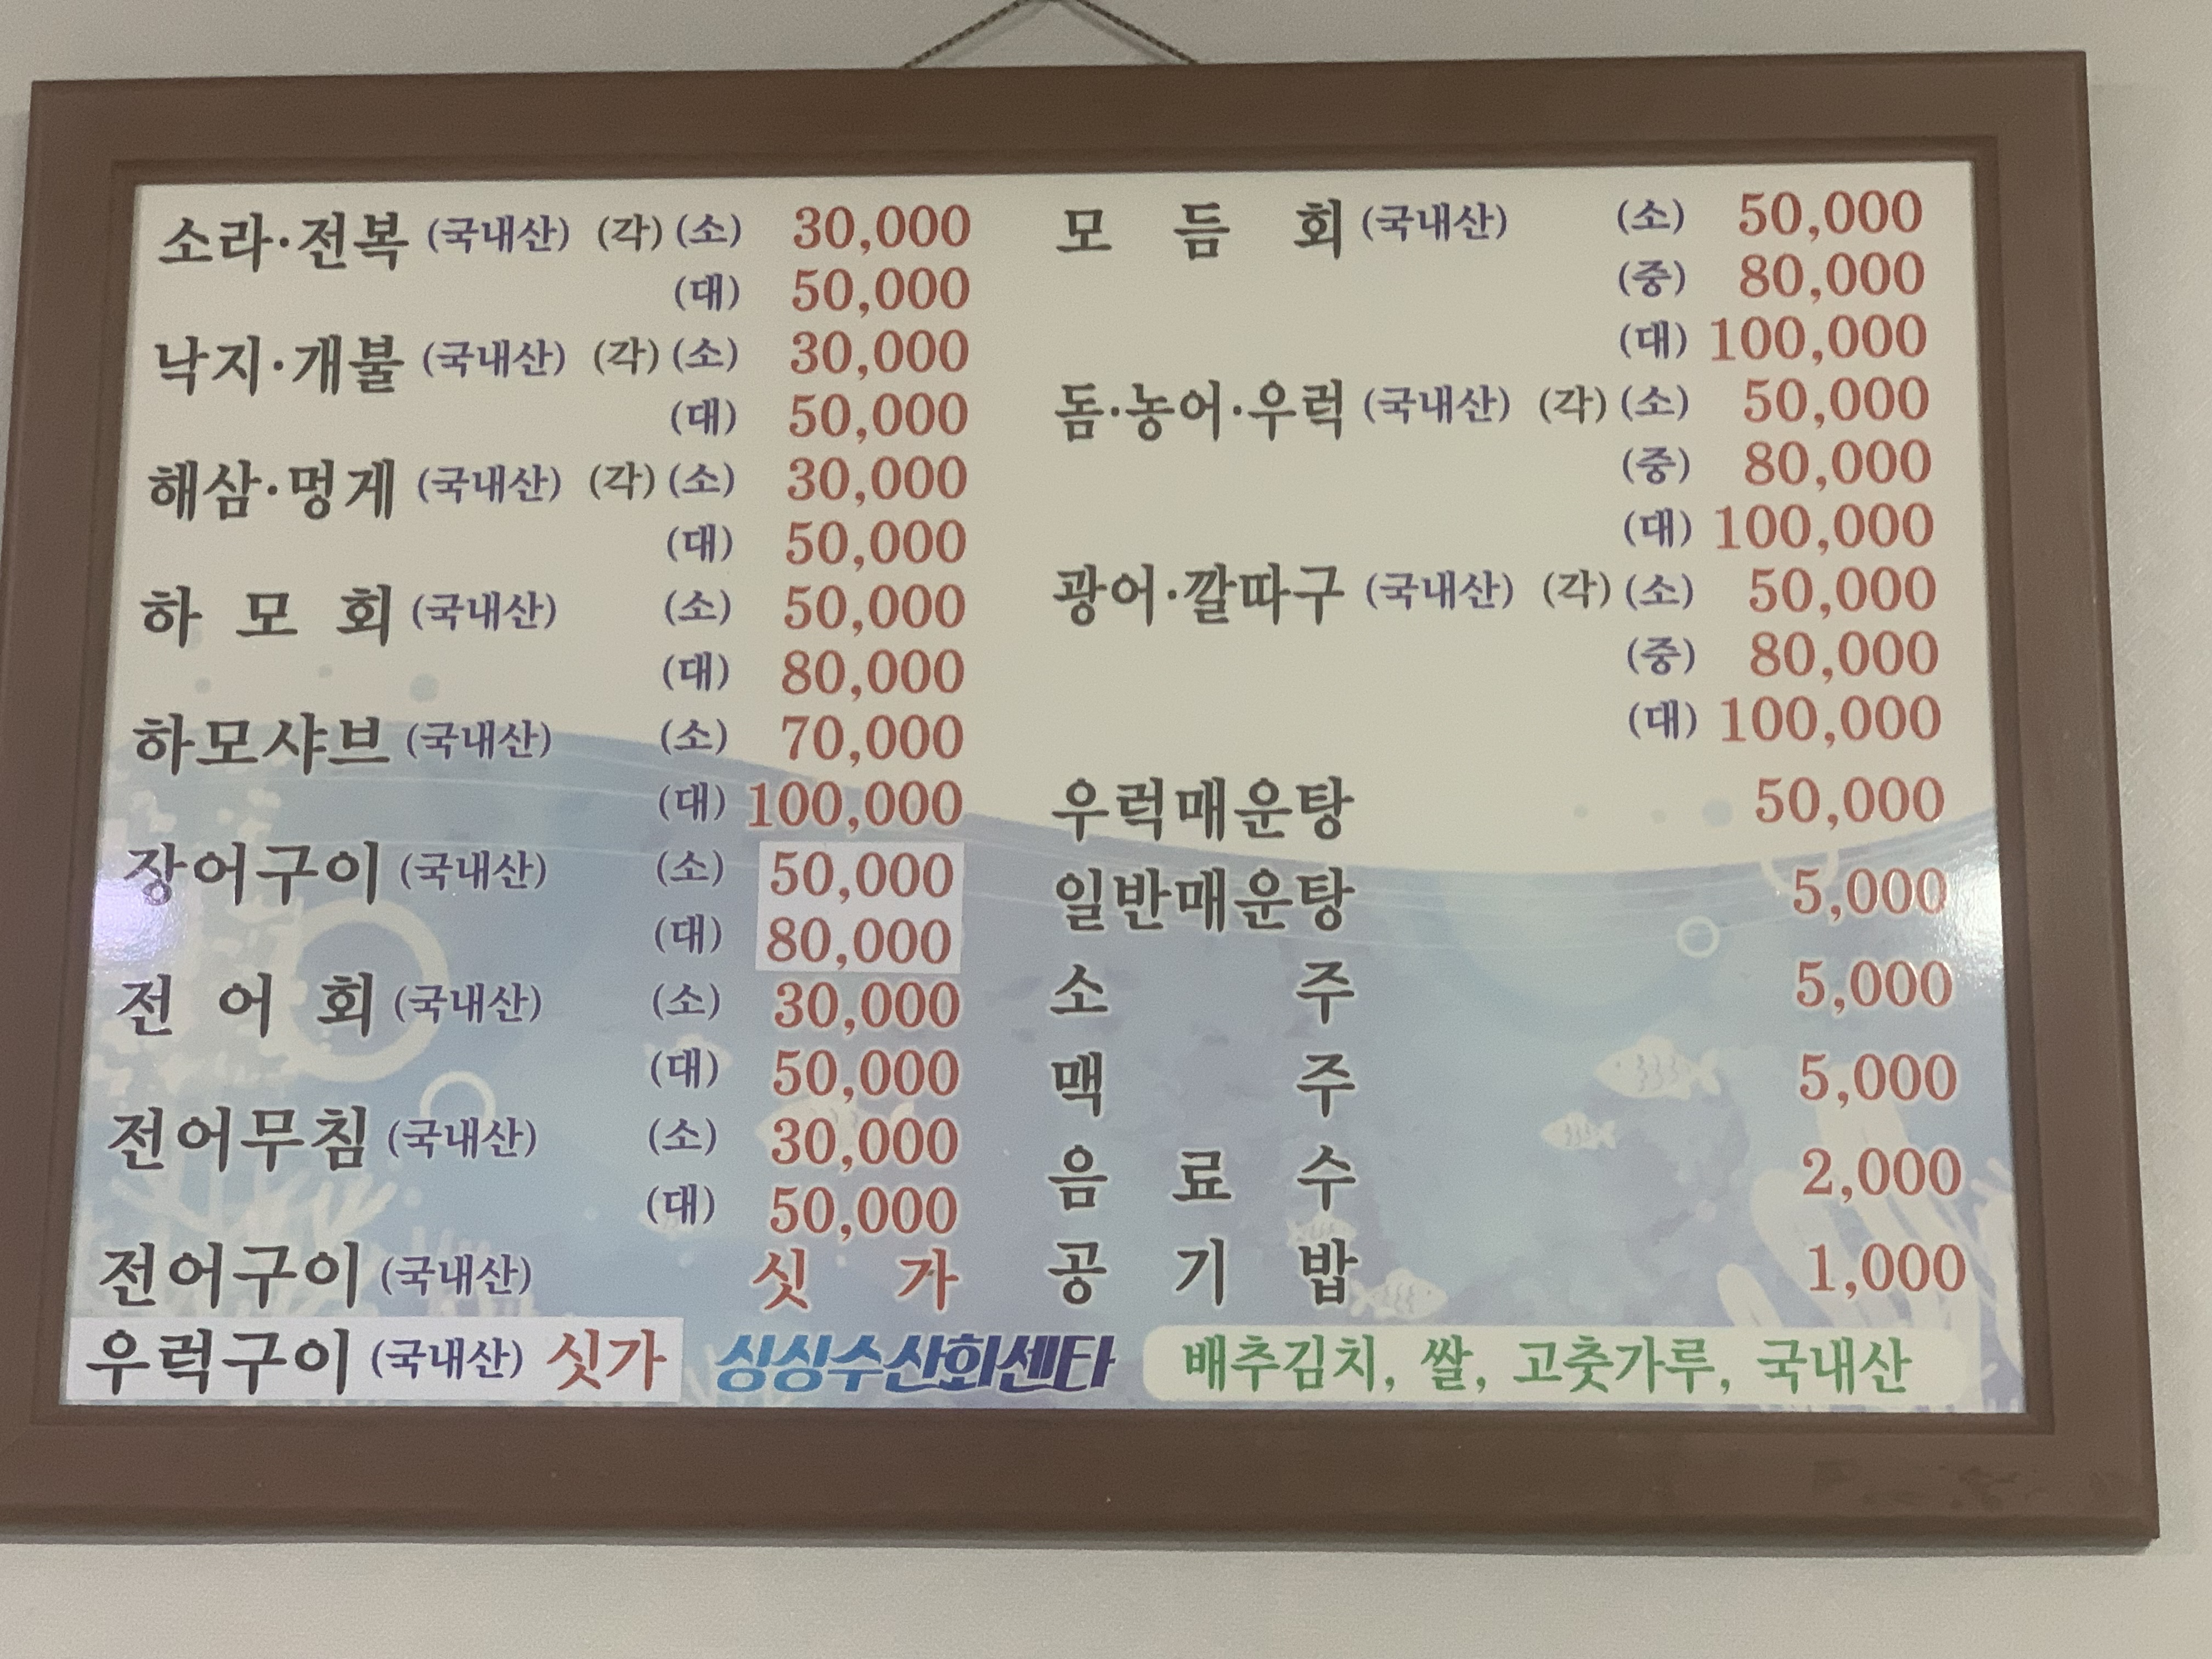 소라·전복 (국내산) (각) (소) 30,000
(대) 50,000
낙지·개불 (국내산) (각) (소) 30,000
(대) 50,000
해삼·멍게 (국내산) (각) (소) 30,000
(대) 50,000
하 모 회 (국내산) (소) 50,000
(대) 80,000
하모샤브 (국내산) (소) 70,000
(대) 100,000
장어구이 (국내산) (소) 50,000
(대) 80,000
전 어 회 (국내산) (소) 30,000
(대) 50,000
전어무침 (국내산) (소) 30,000
(대) 50,000
전어구이 (국내산) 싯 가
우럭구이 (국내산) 싯가
모 듬 회 (국내산) (소) 50,000
(중) 80,000
(대) 100,000
돔·농어·우럭 (국내산) (각) (소) 50,000
(중) 80,000
(대) 100,000
광어·깔따구 (국내산) (각) (소) 50,000
(중) 80,000
(대) 100,000
우럭매운탕 50,000
일반매운탕 5,000
소 주 5,000
맥 주 5,000
음 료 수 2,000
공 기 밥 1,000
싱싱수산회센타
배추김치, 쌀, 고춧가루, 국내산